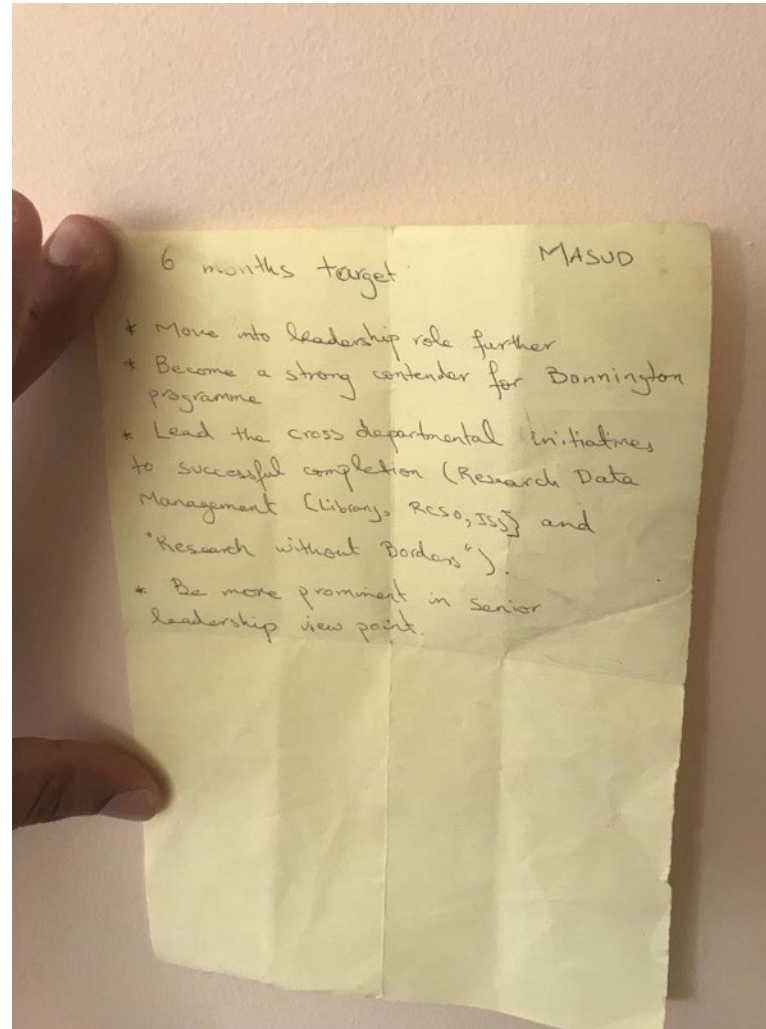 6 months target MASUD
* Move into leadership role further
* Become a strong contender for Bonnington
programme
* Lead the cross departmental initiatives
to successful completion (Research Data
Management [Library, RCSO, ISS] and
"Research without Borders").
* Be more prominent in senior
leadership view point.